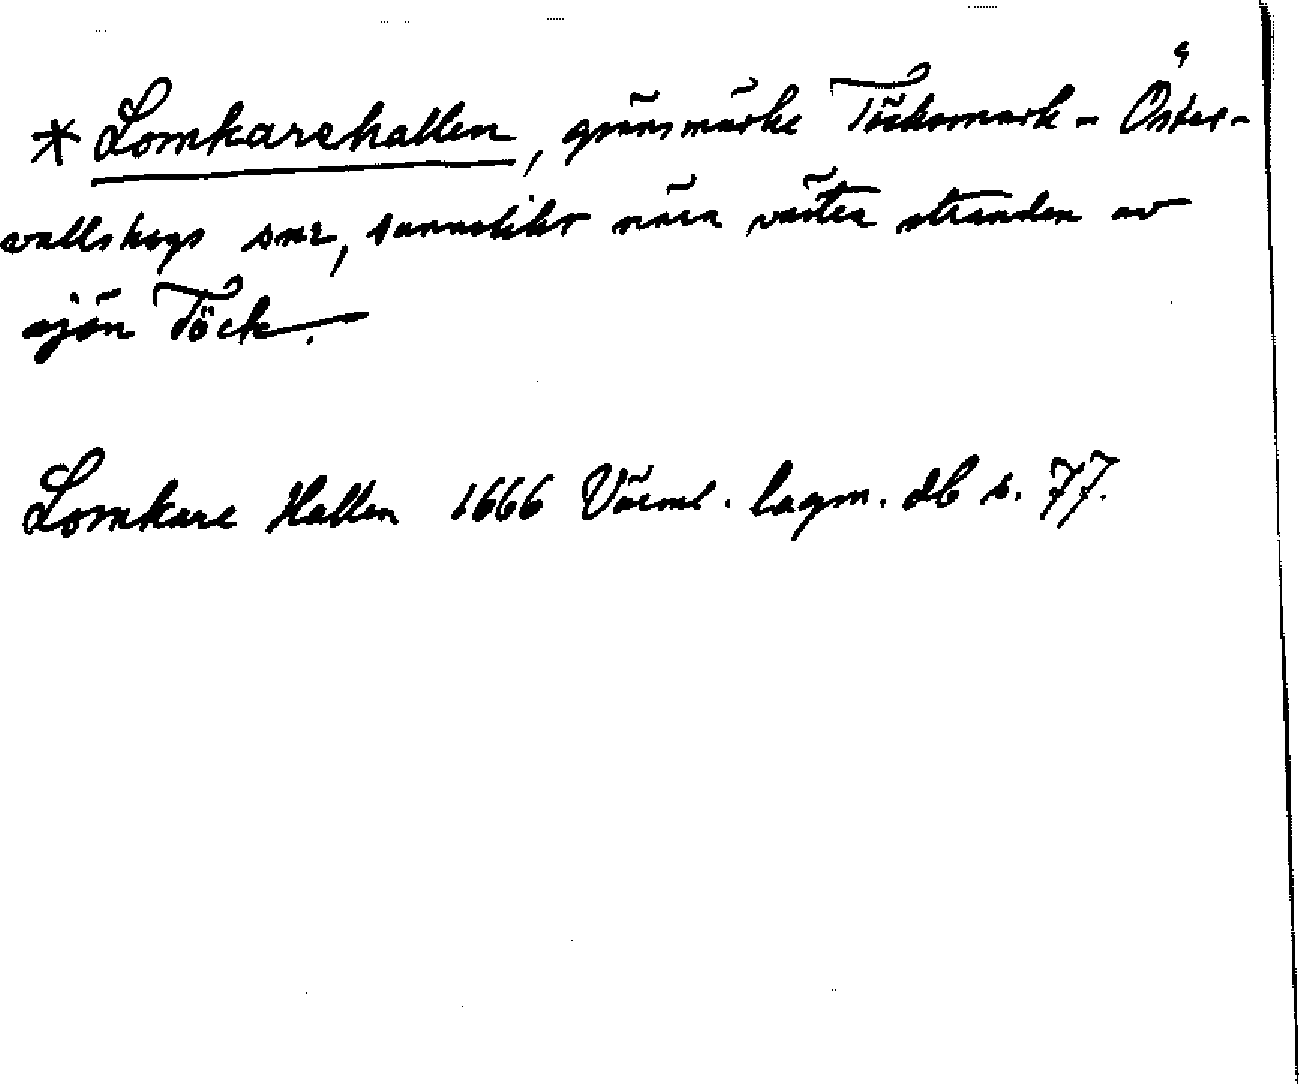 * Lomkarehallen, gränsmärke Töcksmark - Öster-
vallskogs snr, sannolikt nära västra stranden av
sjön Töck.
Lomkare Hallen 1666 Värml. lagm. db s. 77.